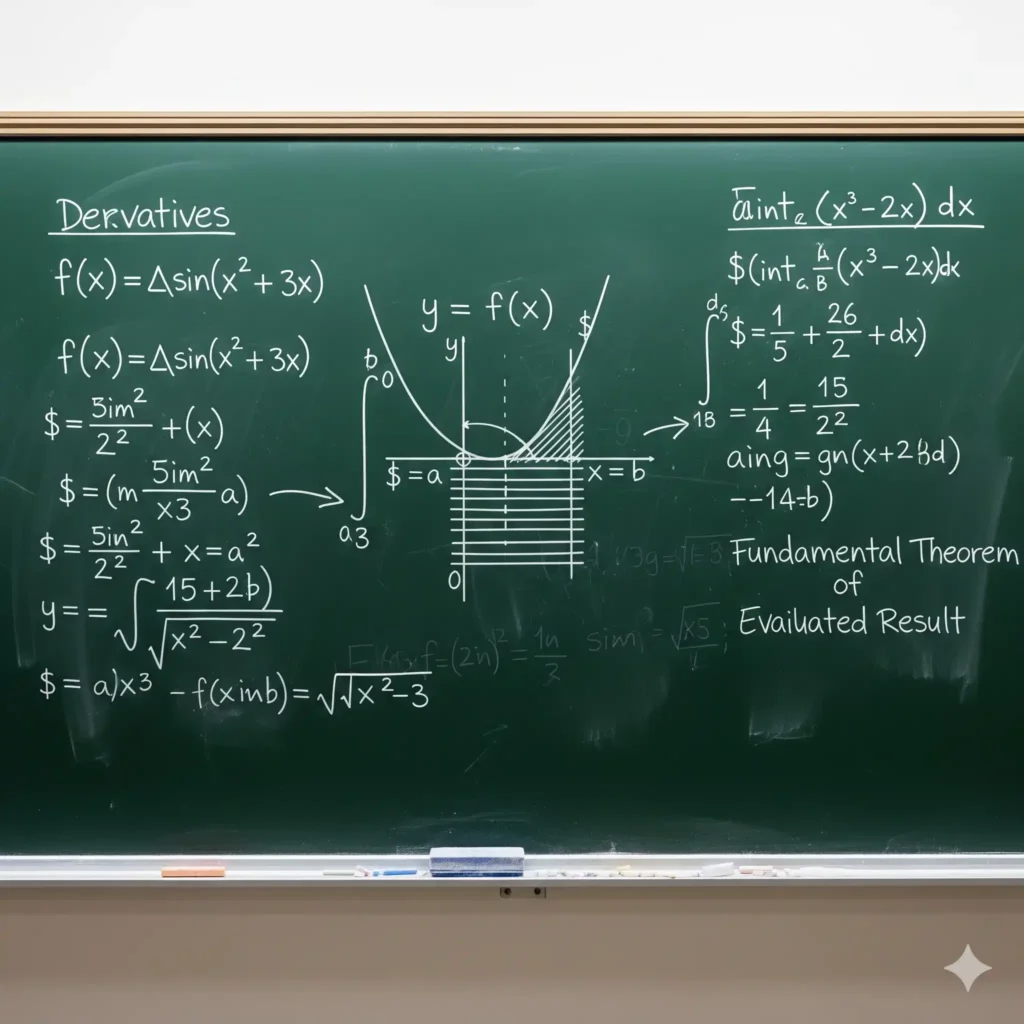 Der.vatives
f(x) = Δsin(x² + 3x)
f(x) = Δsin(x² + 3x)
$ = 5im²/2² + (x)
$ = (m 5im²/x3 a)
$ = 5in²/2² + x = a²
y = = ∫ 15+2b)/√(x² – 2²)
$ = a)x3 – f(xinb) = √√x² – 3
y = f(x)
y
$
b
0
a3
$ = a
x = b
0
(x³ – 2x) dx
$(int a. A/B (x³ – 2x)dx
∫ $ = 1/5 + 26/2 + dx)
1B = 1/4 = 15/2²
aing = gn(x+2
--14=b)
Fundamental Theorem
of
Evaiuated Result